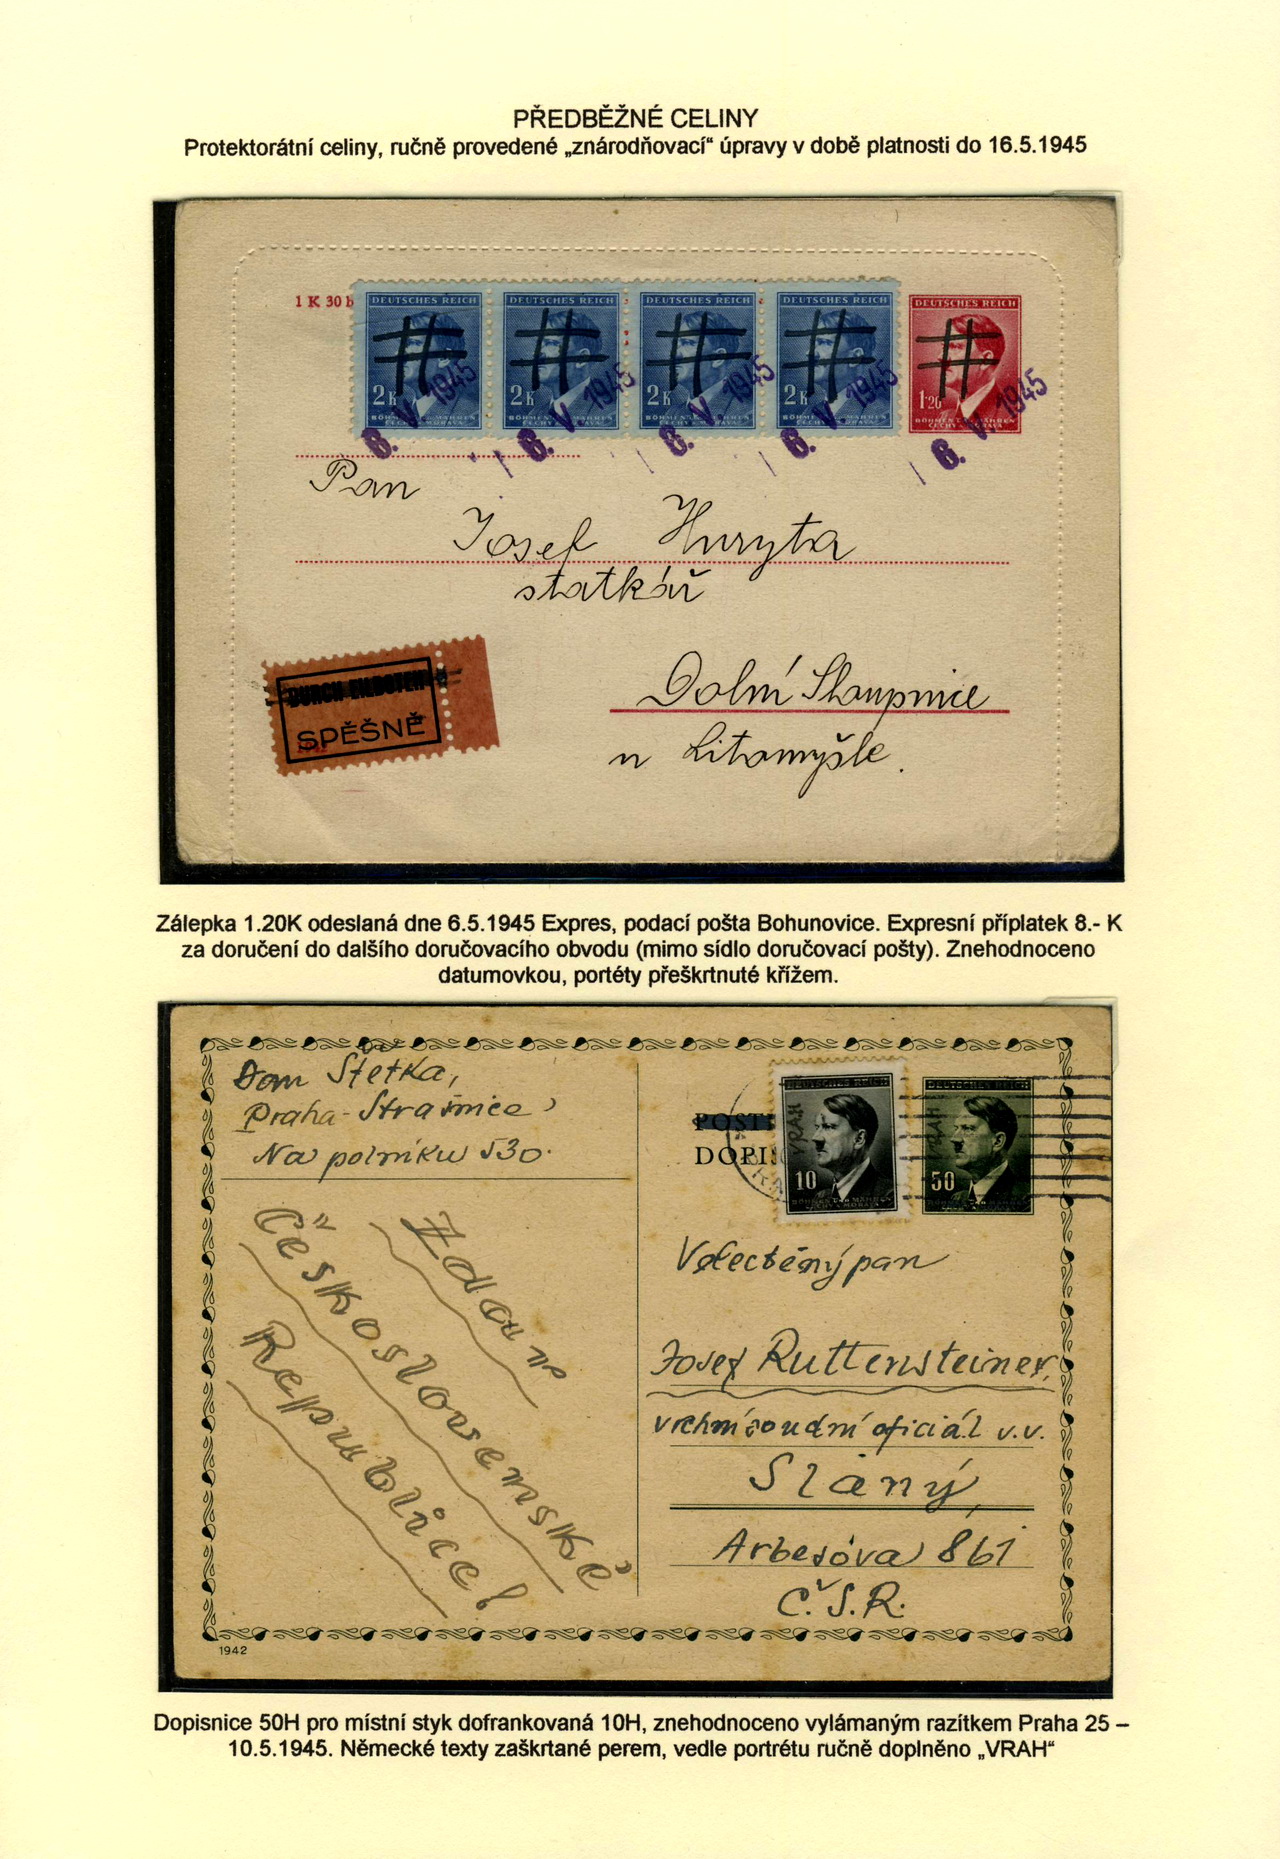 PŘEDBĚŽNÉ CELINY
Protektorátní celiny, ručně provedené „znárodňovací“ úpravy v době platnosti do 16.5.1945
1 K 30 h
DEUTSCHES REICH DEUTSCHES REICH DEUTSCHES REICH DEUTSCHES REICH DEUTSCHES REICH
2 K 2 K 2 K 2 K 1·20
BÖHMEN U. MÄHREN
ČECHY A MORAVA
6. V. 1945 6. V. 1945 6. V. 1945 6. V. 1945 6. V. 1945
Pan
Josef Huryta
statkář
DURCH EILBOTEN
SPĚŠNĚ
Dolní Sloupnice
u Litomyšle.
Zálepka 1.20K odeslaná dne 6.5.1945 Expres, podací pošta Bohunovice. Expresní příplatek 8.- K
za doručení do dalšího doručovacího obvodu (mimo sídlo doručovací pošty). Znehodnoceno
datumovkou, portéty přeškrtnuté křížem.
Dom Štětka,
Praha-Strašnice,
Na polníku 530.
Zdar
Československé
Republice!
DEUTSCHES REICH DEUTSCHES REICH
VRAH VRAH
DOPIS
10 50
BÖHMEN U. MÄHREN
ČECHY A MORAVA
Velectěný pan
Josef Ruttensteiner,
vrchní soudní oficiál v.v.
Slaný,
Arbesova 861
Č.S.R.
1942
Dopisnice 50H pro místní styk dofrankovaná 10H, znehodnoceno vylámaným razítkem Praha 25 –
10.5.1945. Německé texty zaškrtané perem, vedle portrétu ručně doplněno „VRAH“